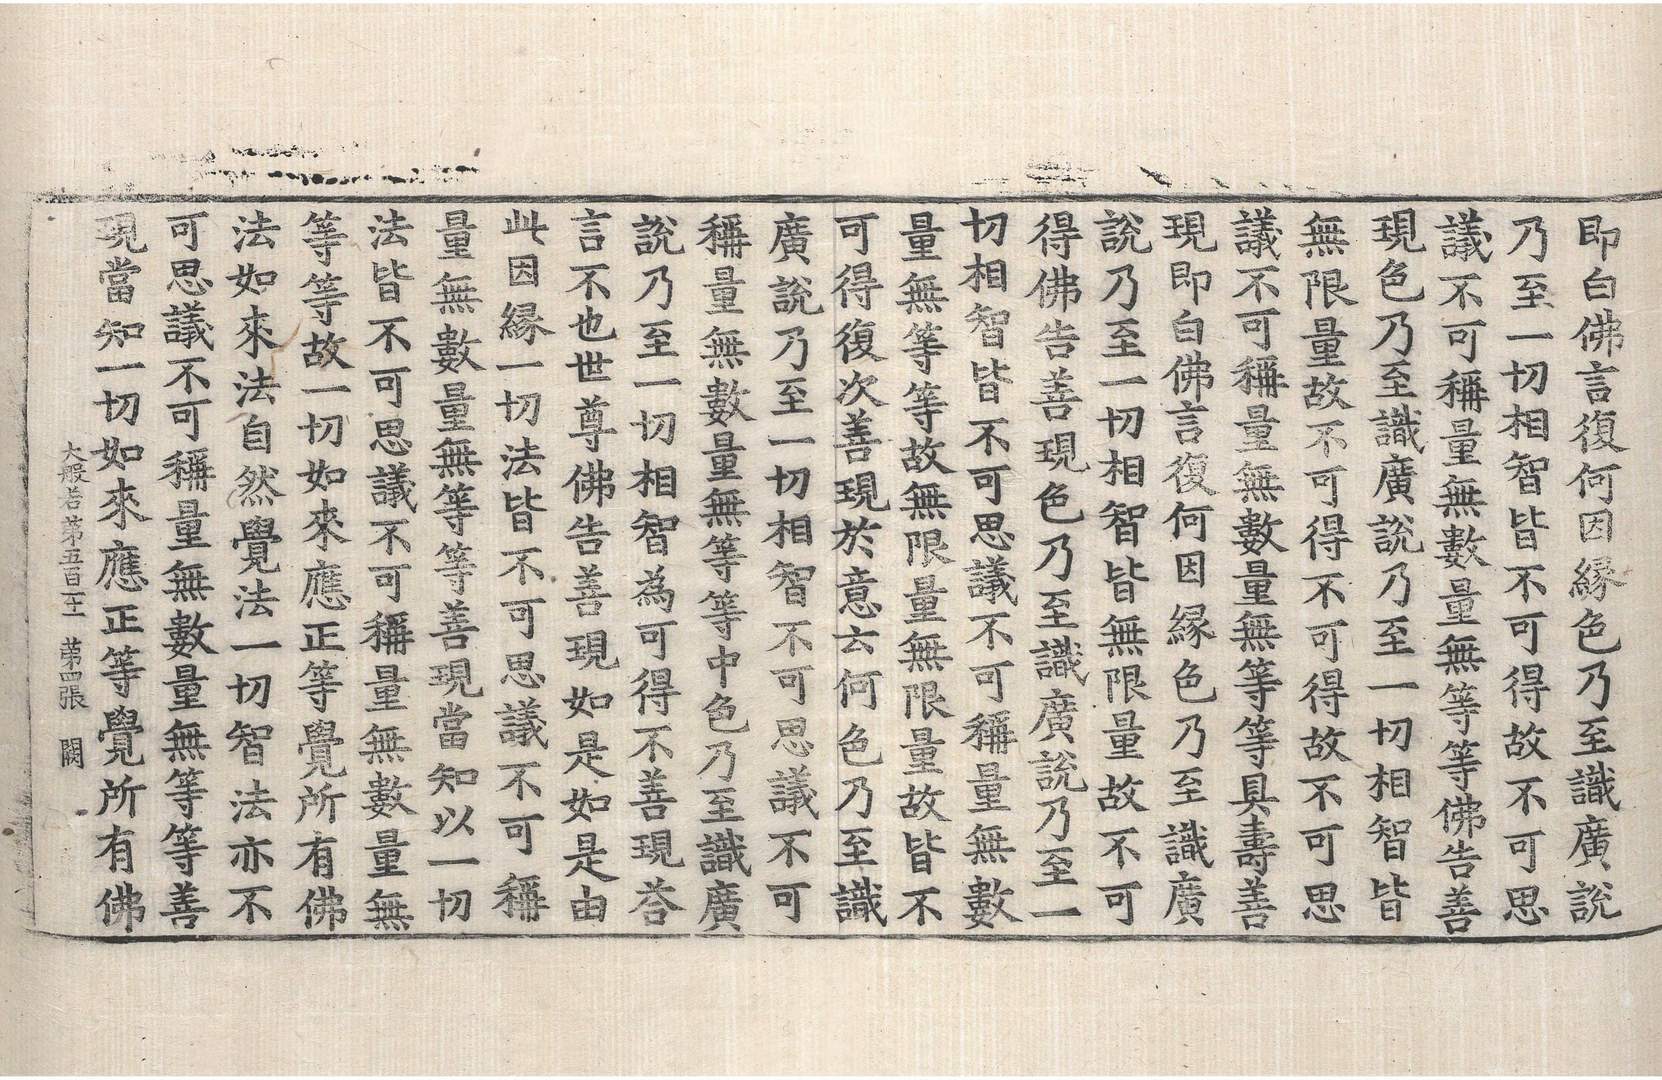 即白佛言復何因縁色乃至識廣說
乃至一切相智皆不可得故不可思
議不可稱量無數量無等等佛告善
現色乃至識廣說乃至一切相智皆
無限量故不可得不可得故不可思
議不可稱量無數量無等等具壽善
現即白佛言復何因縁色乃至識廣
說乃至一切相智皆無限量故不可
得佛告善現色乃至識廣說乃至一
切相智皆不可思議不可稱量無數
量無等等故無限量無限量故皆不
可得復次善現於意云何色乃至識
廣說乃至一切相智不可思議不可
稱量無數量無等等中色乃至識廣
說乃至一切相智為可得不善現荅
言不也世尊佛告善現如是如是由
此因縁一切法皆不可思議不可稱
量無數量無等等善現當知以一切
法皆不可思議不可稱量無數量無
等等故一切如來應正等覺所有佛
法如來法自然覺法一切智法亦不
可思議不可稱量無數量無等等善
現當知一切如來應正等覺所有佛
大般若第五百 第四張 闕